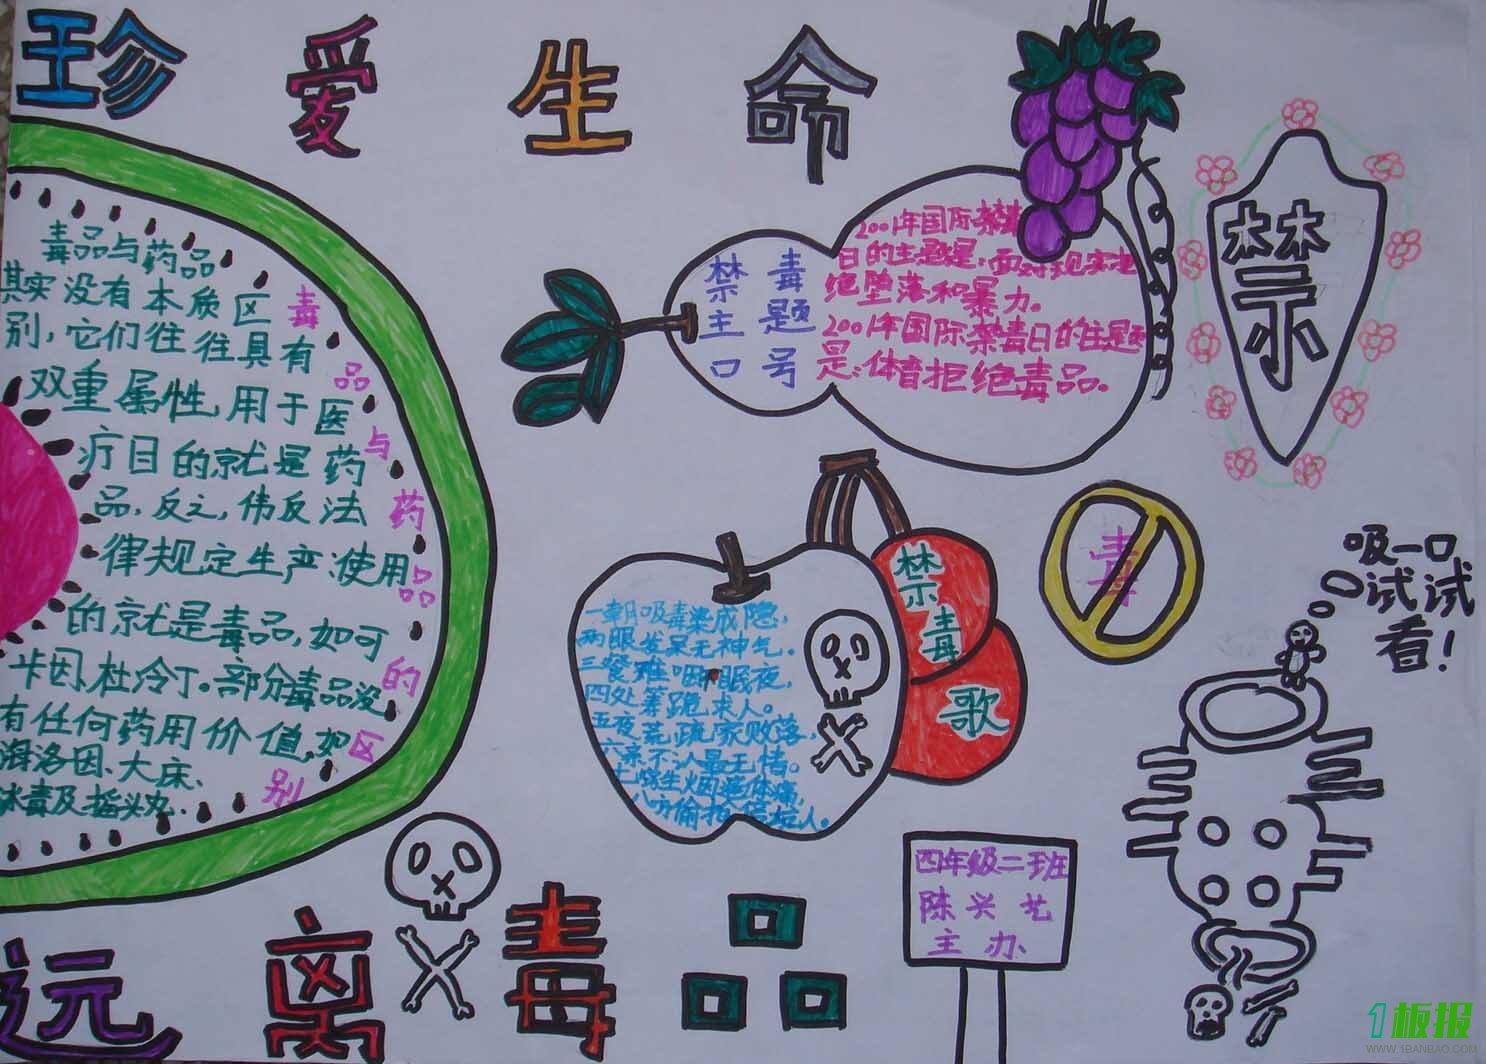 珍爱生命
毒品与药品
其实没有本质区
别，它们往往具有
双重属性，用于医
疗目的就是药
品，反之，伟反法
律规定生产、使用
的就是毒品，如可
卡因、杜冷丁。部分毒品没
有任何药用价值，如
海洛因、大床、
冰毒及摇头丸.
毒品与药品的区别
禁毒
主题
口号
2001年国际禁毒
日的主题是：面对现实
绝堕落和暴力。
2001年国际禁毒日的主题
是：体育拒绝毒品。
禁
禁毒
歌
一朝吸毒染成隐，
两眼发呆无神气.
三餐难咽 眠夜，
四处筹跪求人。
五夜荒疏家败落，
六亲不 人最无情。
七 生烟 体痛，
八方偷拍 人。
毒
吸一口
试试
看！
四年级二班
陈兴艺
主办
远离毒品
1板报
WWW.1BANBAO.COM